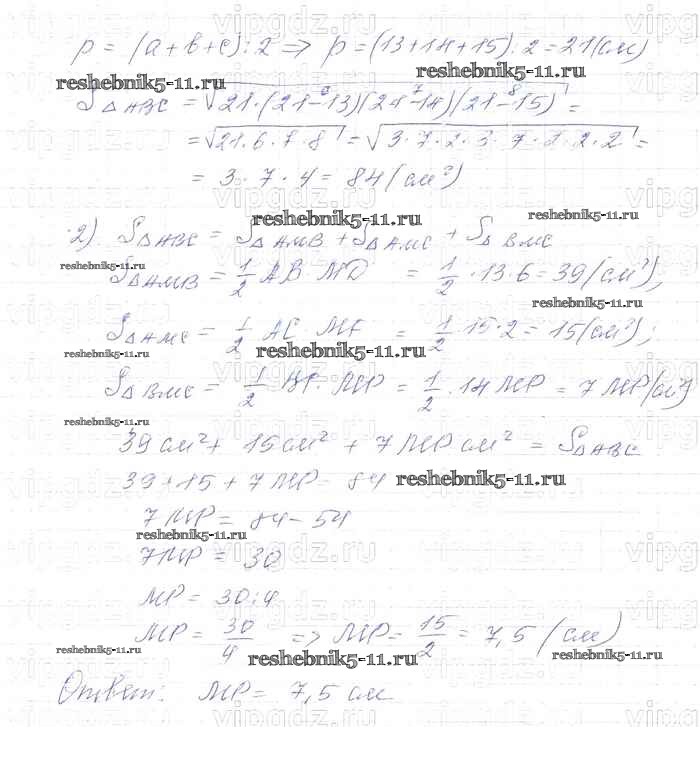 p = (a + b + c) : 2 => p = (13+14+15) : 2 = 21 (см)
reshebnik5-11.ru
S△ABC = √21·(21-13)(21-14)(21-15) =
= √21·6·7·8 = √3·7·2·3·7·2·2·2 =
= 3·7·4 = 84 (см²)
reshebnik5-11.ru
reshebnik5-11.ru
2) S△ABC = S△AMB + S△AMC + S△BMC
reshebnik5-11.ru
S△AMB = 1/2 AB·MD = 1/2·13·6 = 39 (см²);
reshebnik5-11.ru
S△AMC = 1/2 AC MF = 1/2·15·2 = 15 (см²);
reshebnik5-11.ru
reshebnik5-11.ru
S△BMC = 1/2 BC·MP = 1/2·14 MP = 7 MP (см²)
reshebnik5-11.ru
39 см² + 15 см² + 7 MP см² = S△ABC
39 + 15 + 7 MP = 84
reshebnik5-11.ru
7 MP = 84 - 54
reshebnik5-11.ru
7 MP = 30
MP = 30 : 4
MP = 30/4 => MP = 15/2 = 7,5 (см)
reshebnik5-11.ru
reshebnik5-11.ru
reshebnik5-11.ru
Ответ: MP = 7,5 см
vipgdz.ru